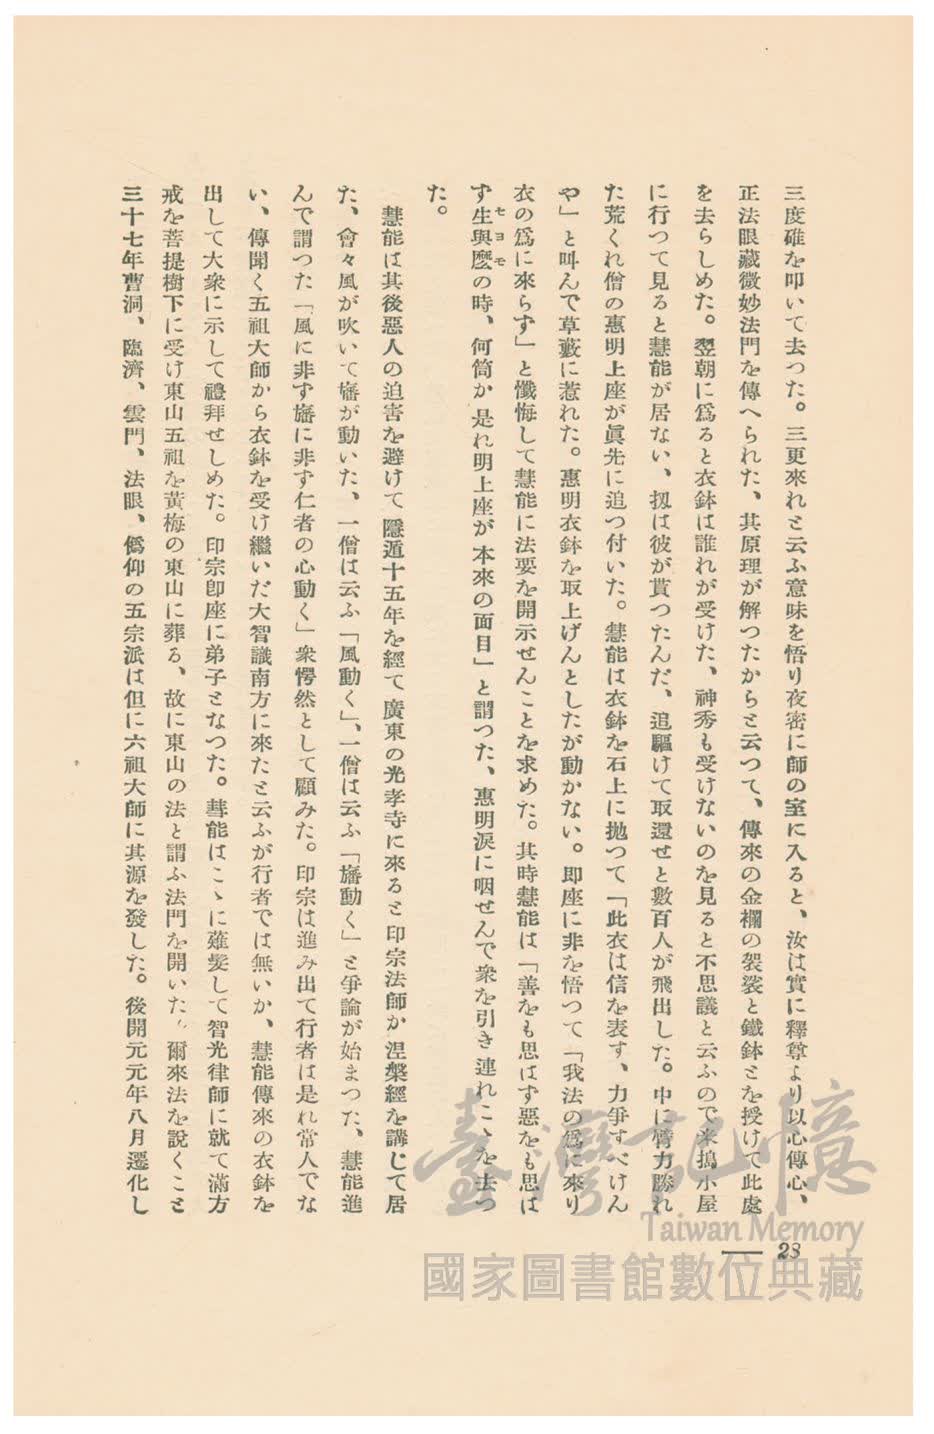 三度碓を叩いて去つた。三更來れと云ふ意味を悟り夜密に師の室に入ると、汝は實に釋尊より以心傳心、
正法眼藏微妙法門を傳へられた、其原理が解つたからと云つて、傳來の金襴の袈裟と鐵鉢とを授けて此處
を去らしめた。翌朝に爲ると衣鉢は誰れが受けた、神秀も受けないのを見ると不思議と云ふので米搗小屋
に行つて見ると慧能が居ない、扨は彼が貰つたんだ、追驅けて取還せと數百人が飛出した。中に臂力勝れ
た荒くれ僧の惠明上座が眞先に追つ付いた。慧能は衣鉢を石上に抛つて「此衣は信を表す、力爭すべけん
や」と叫んで草藪に惹れた。惠明衣鉢を取上げんとしたが動かない。即座に非を悟つて「我法の爲に來り
衣の爲に來らず」と懺悔して慧能に法要を開示せんことを求めた。其時慧能は「善をも思はず惡をも思は
ず生與麼の時、何箇か是れ明上座が本來の面目」と謂つた、惠明涙に咽せんで衆を引き連れこゝを去つ
セヨモ
た。
慧能は其後惡人の迫害を避けて隱遁十五年を經て廣東の光孝寺に來ると印宗法師か涅槃經を講じて居
た、會々風が吹いて旛が動いた、一僧は云ふ「風動く」、一僧は云ふ「旛動く」と爭論が始まつた、慧能進
んで謂つた「風に非ず旛に非ず仁者の心動く」衆愕然として顧みた。印宗は進み出て行者は是れ常人でな
い、傳聞く五祖大師から衣鉢を受け繼いだ大智識南方に來たと云ふが行者では無いか、慧能傳來の衣鉢を
出して大衆に示して禮拜せしめた。印宗卽座に弟子となつた。彗能はこゝに薙髮して智光律師に就て滿方
戒を菩提樹下に受け東山五祖を黃梅の東山に葬る、故に東山の法と謂ふ法門を開いた、爾來法を說くこと
三十七年曹洞、臨濟、雲門、法眼、僞仰の五宗派は但に六祖大師に其源を發した。後開元元年八月遷化し
23
臺灣記憶
Taiwan Memory
國家圖書館數位典藏